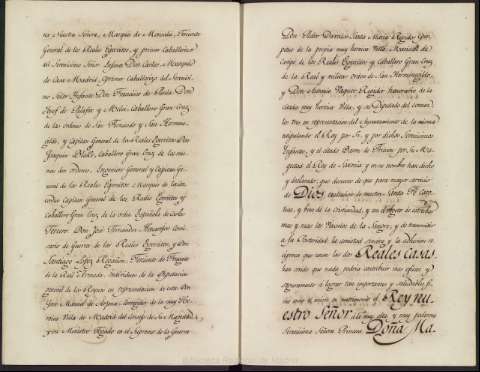 na Nuestra Señora, Marqués de Monsalud, Teniente
General de los Reales Exércitos, y primer Caballerizo
del Serenísimo Señor Infante Don Carlos, Marqués
de Casa
Madrid, primer Caballerizo del Serenísi-
mo Señor Infante Don Francisco de Paula, Don
José de Palafox y Melci, Caballero Gran Cruz
de las órdenes de San Fernando y San Hermene-
gildo, y Capitan General de los Reales Exércitos, Don
Joaquin Blake, Caballero Gran Cruz de las mis-
mas dos órdenes, Ingeniero General y Capitan Ge-
neral de los Reales Exércitos, Marqués de
Capitan General de los Reales Exércitos y
Caballero Gran Cruz de la orden Española de Carlos
Tercero, Don José Fernandez
Comi-
sario de Guerra de los Reales Exércitos, y Don
Santiago Lopez
Teniente de Fragata
de la Real Armada, Individuos de la Diputacion
general de los Reynos en representacion de este, Don
Manuel de Arjona, Corregidor de la muy He-
róica Villa de Madrid, del Consejo de Su Magestad,
y su Ministro Togado en el Supremo de la Guerra,
Don
Santa María, Regidor
de la propia muy heroica Villa, Mariscal de
Campo de los Reales Exércitos y Caballero Gran Cruz
de la Real y militar orden de San Hermenegildo,
y Don Joaquin
Regidor honorario de la
citada muy heroica Villa, y su Diputado del comun,
los tres en representacion del Ayuntamiento de la misma
estipulando el Rey por Sí, y por dichos Serenísimos
Infantes, y el citado Baron de
por Su Ma-
gestad el Rey de Saxonia y en su nombre han dicho
y declarado: que deseosos de que para mayor servicio
de Dios, exaltacion de nuestra Santa Fé Cató-
lica, y bien de la Cristiandad,
mas y mas los vínculos de la Sangre, y de transmitir
a la Posteridad la amistad sincera y la adhesion re-
cíproca que unen las dos Reales Casas,
han creido que nada podria contribuir mas eficaz y
á lograr tan importantes y saludables fi-
nes como
el Rey nu-
estro Señor á la muy alta y muy poderosa
Serenísima Señora Princesa Doña Ma-
Biblioteca Regional de Madrid